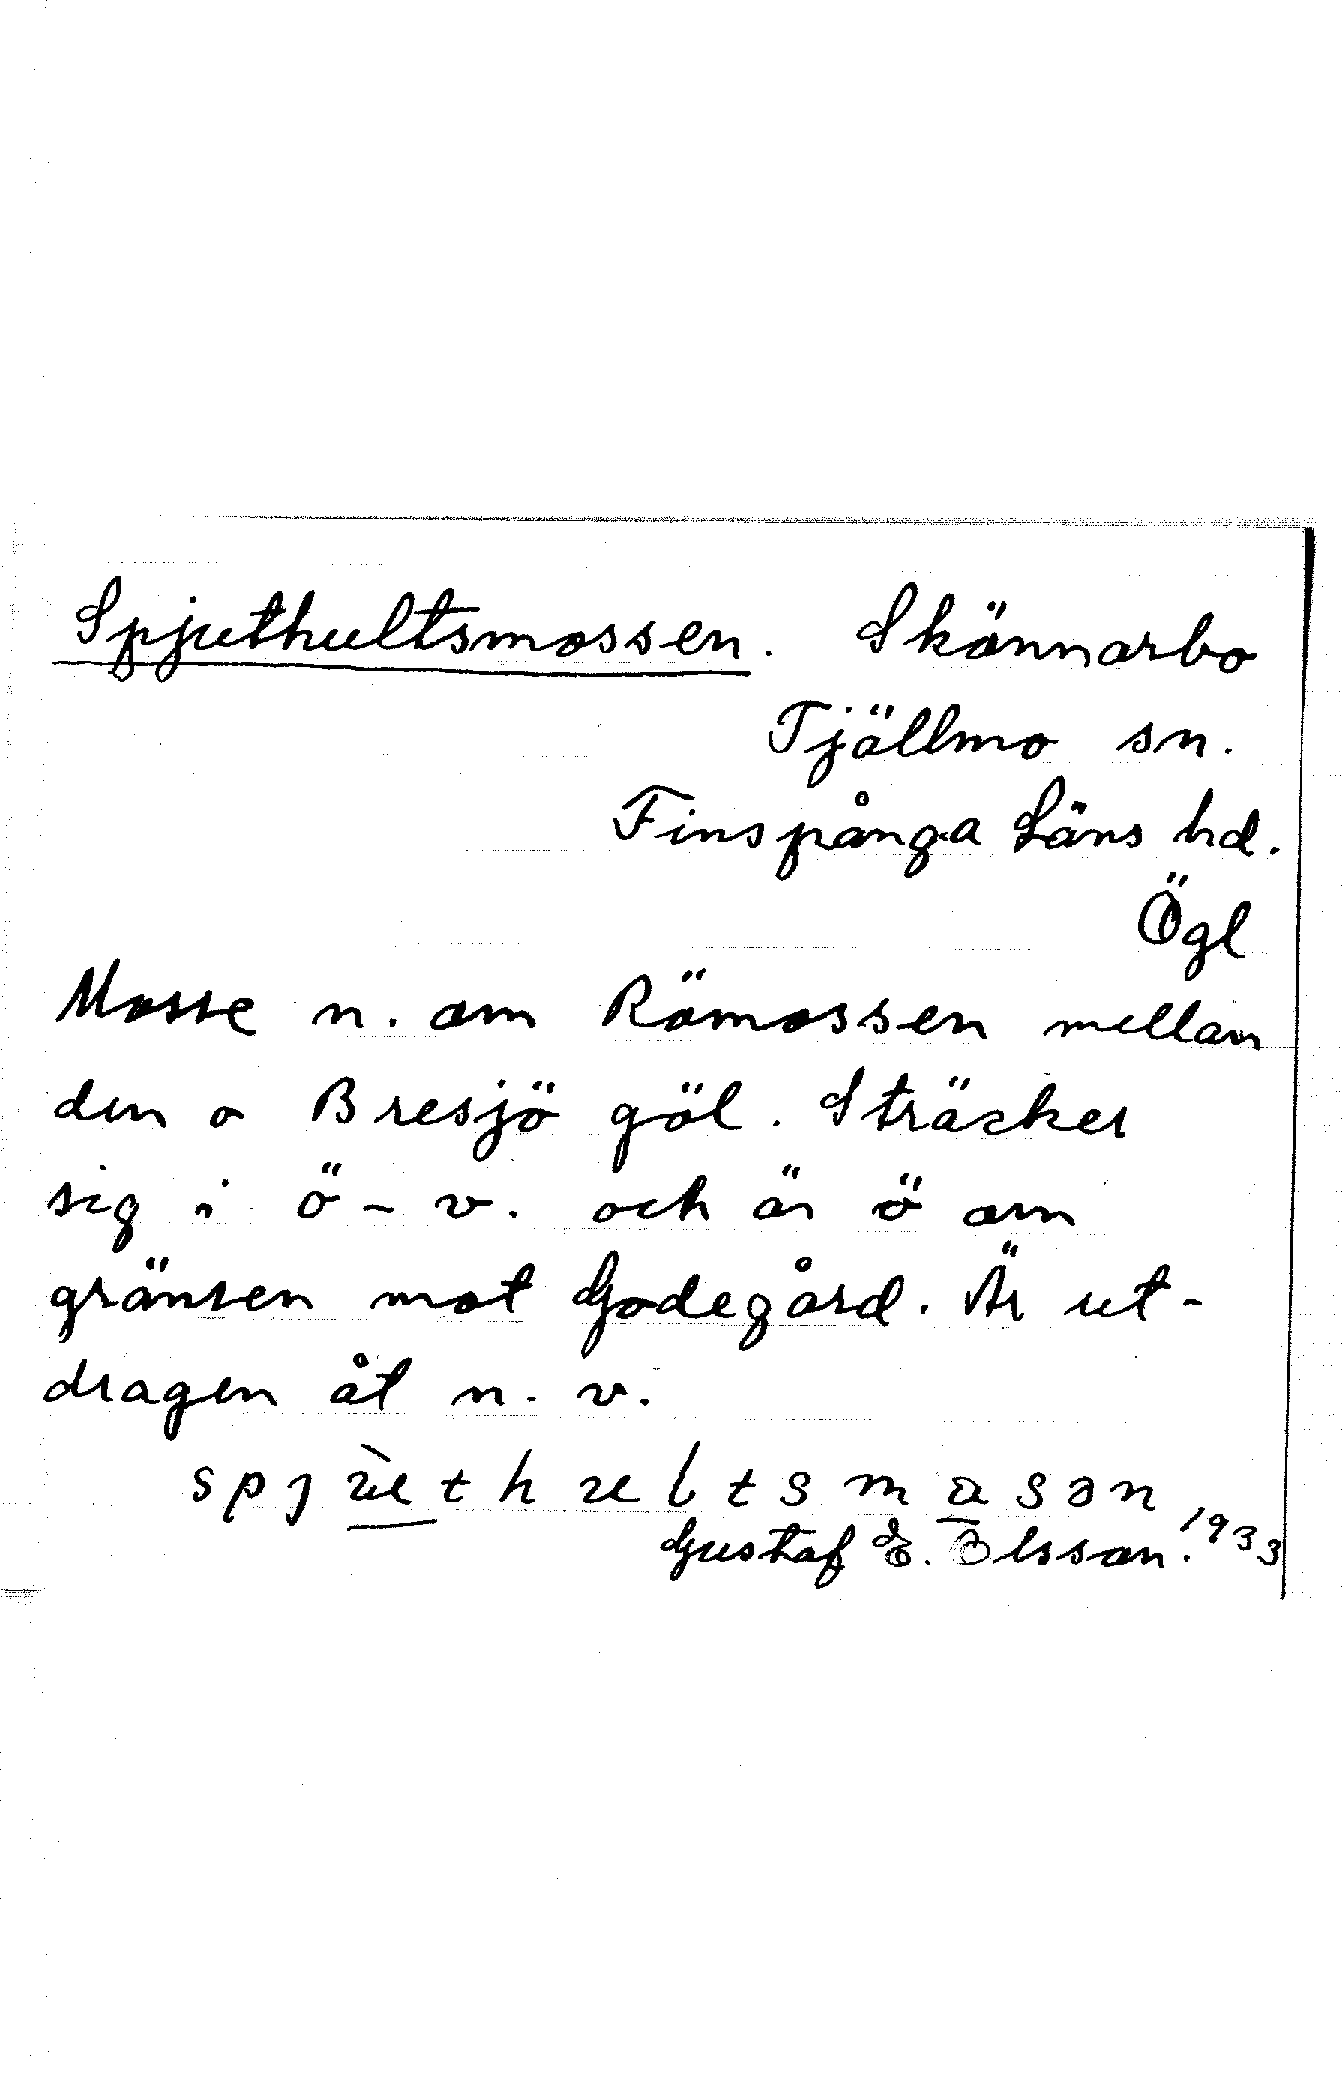 Spjuthultsmossen. Skännarbo
Tjällmo sn.
Finspånga Läns hd.
Ögl
Mosse n. om Römossen mellan
den o Bresjö göl. Sträcker
sig i ö - v. och är ö om
gränsen mot Godegård. Är ut-
dragen åt n. v.
spjùthultsmåsən
Gustaf E. Olsson. 1933